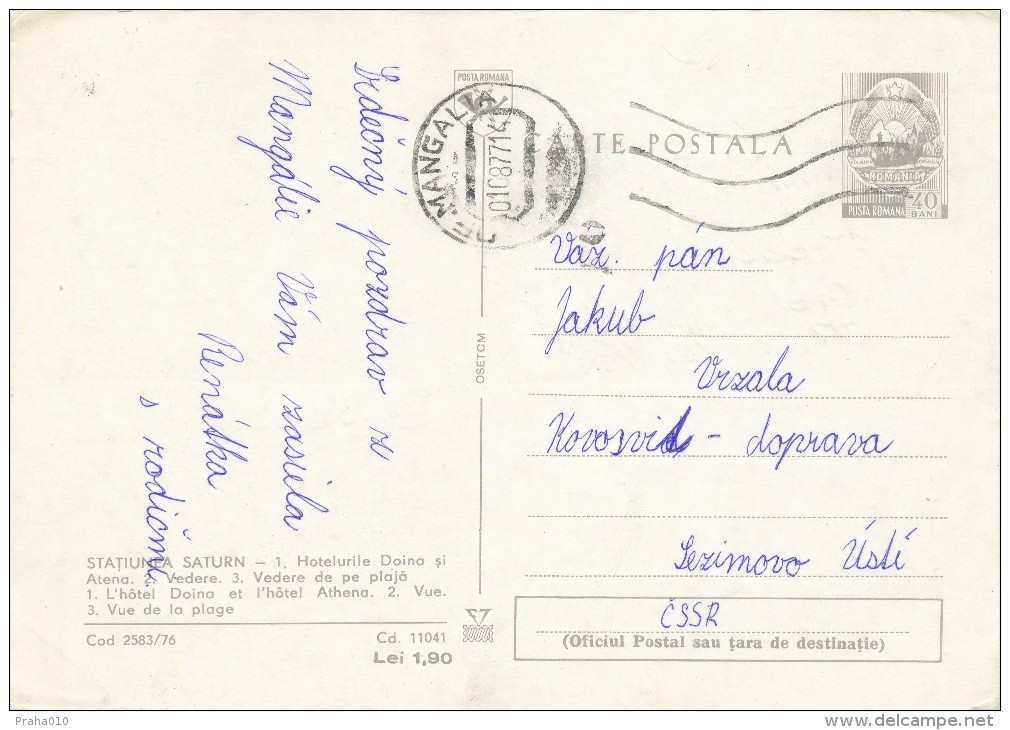 Srdečný pozdrav z
Mangálie Vám zasiela
Renátka
s rodičmi.
STAȚIUNEA SATURN – 1. Hotelurile Doina și
Atena. 2. Vedere. 3. Vedere de pe plajă
1. L'hôtel Doina et l'hôtel Athena. 2. Vue.
3. Vue de la plage
Cod 2583/76
Cd. 11041
Lei 1,90
OSETCM
POSTA ROMANA
MANGALIA
010877 14
CARTE POSTALA
ROMANIA
POSTA ROMANA
40
BANI
Váz. pán
Jakub
Vrzala
Kovosvit - doprava
Sezimovo Ústí
ČSSR
(Oficiul Postal sau țara de destinație)
Praha010
delcampe.net